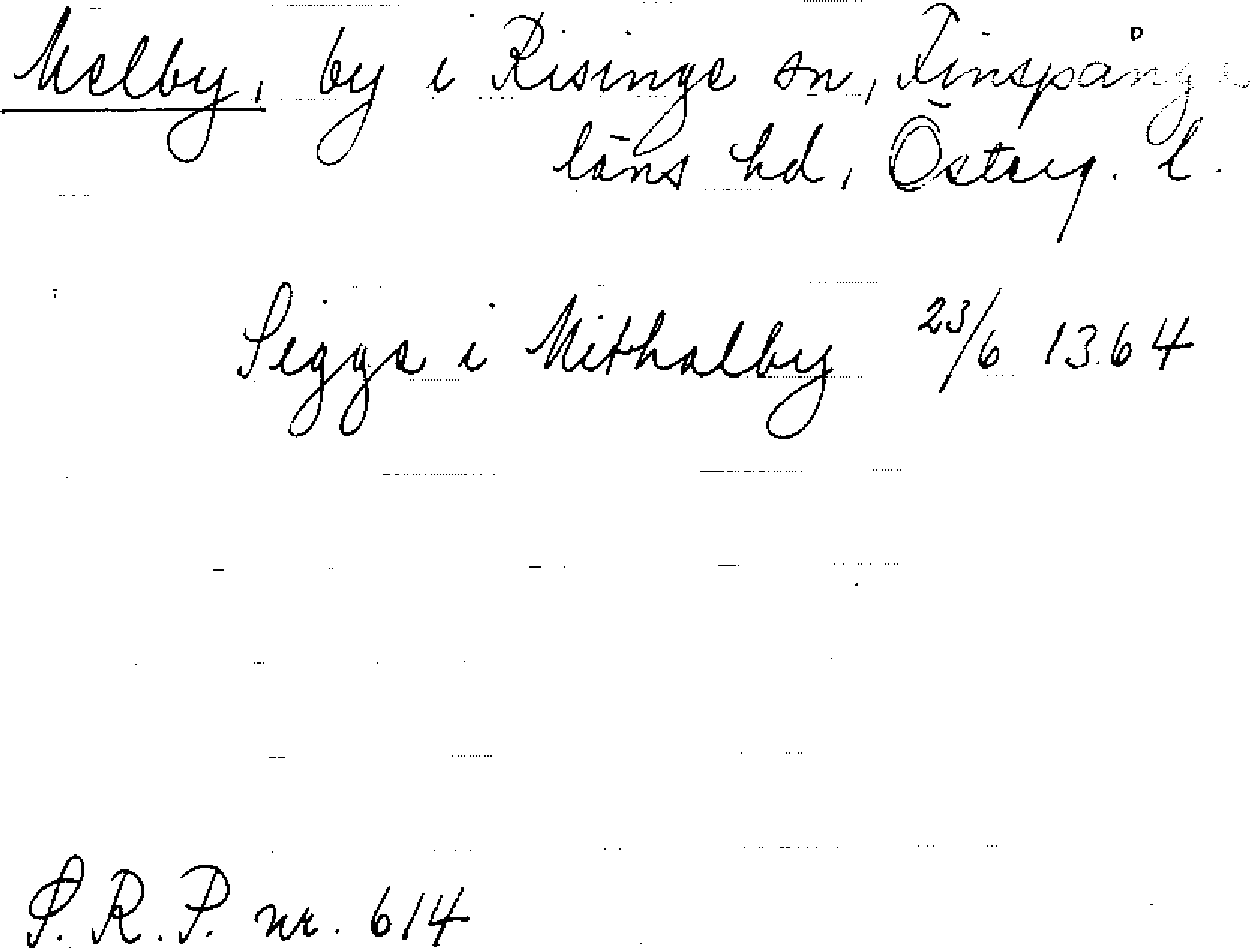 Melby, by i Risinge sn, Finspånga
läns hd, Österg. l.
Sigge i Mithalby 23/6 1364
S.R.P. nr. 614